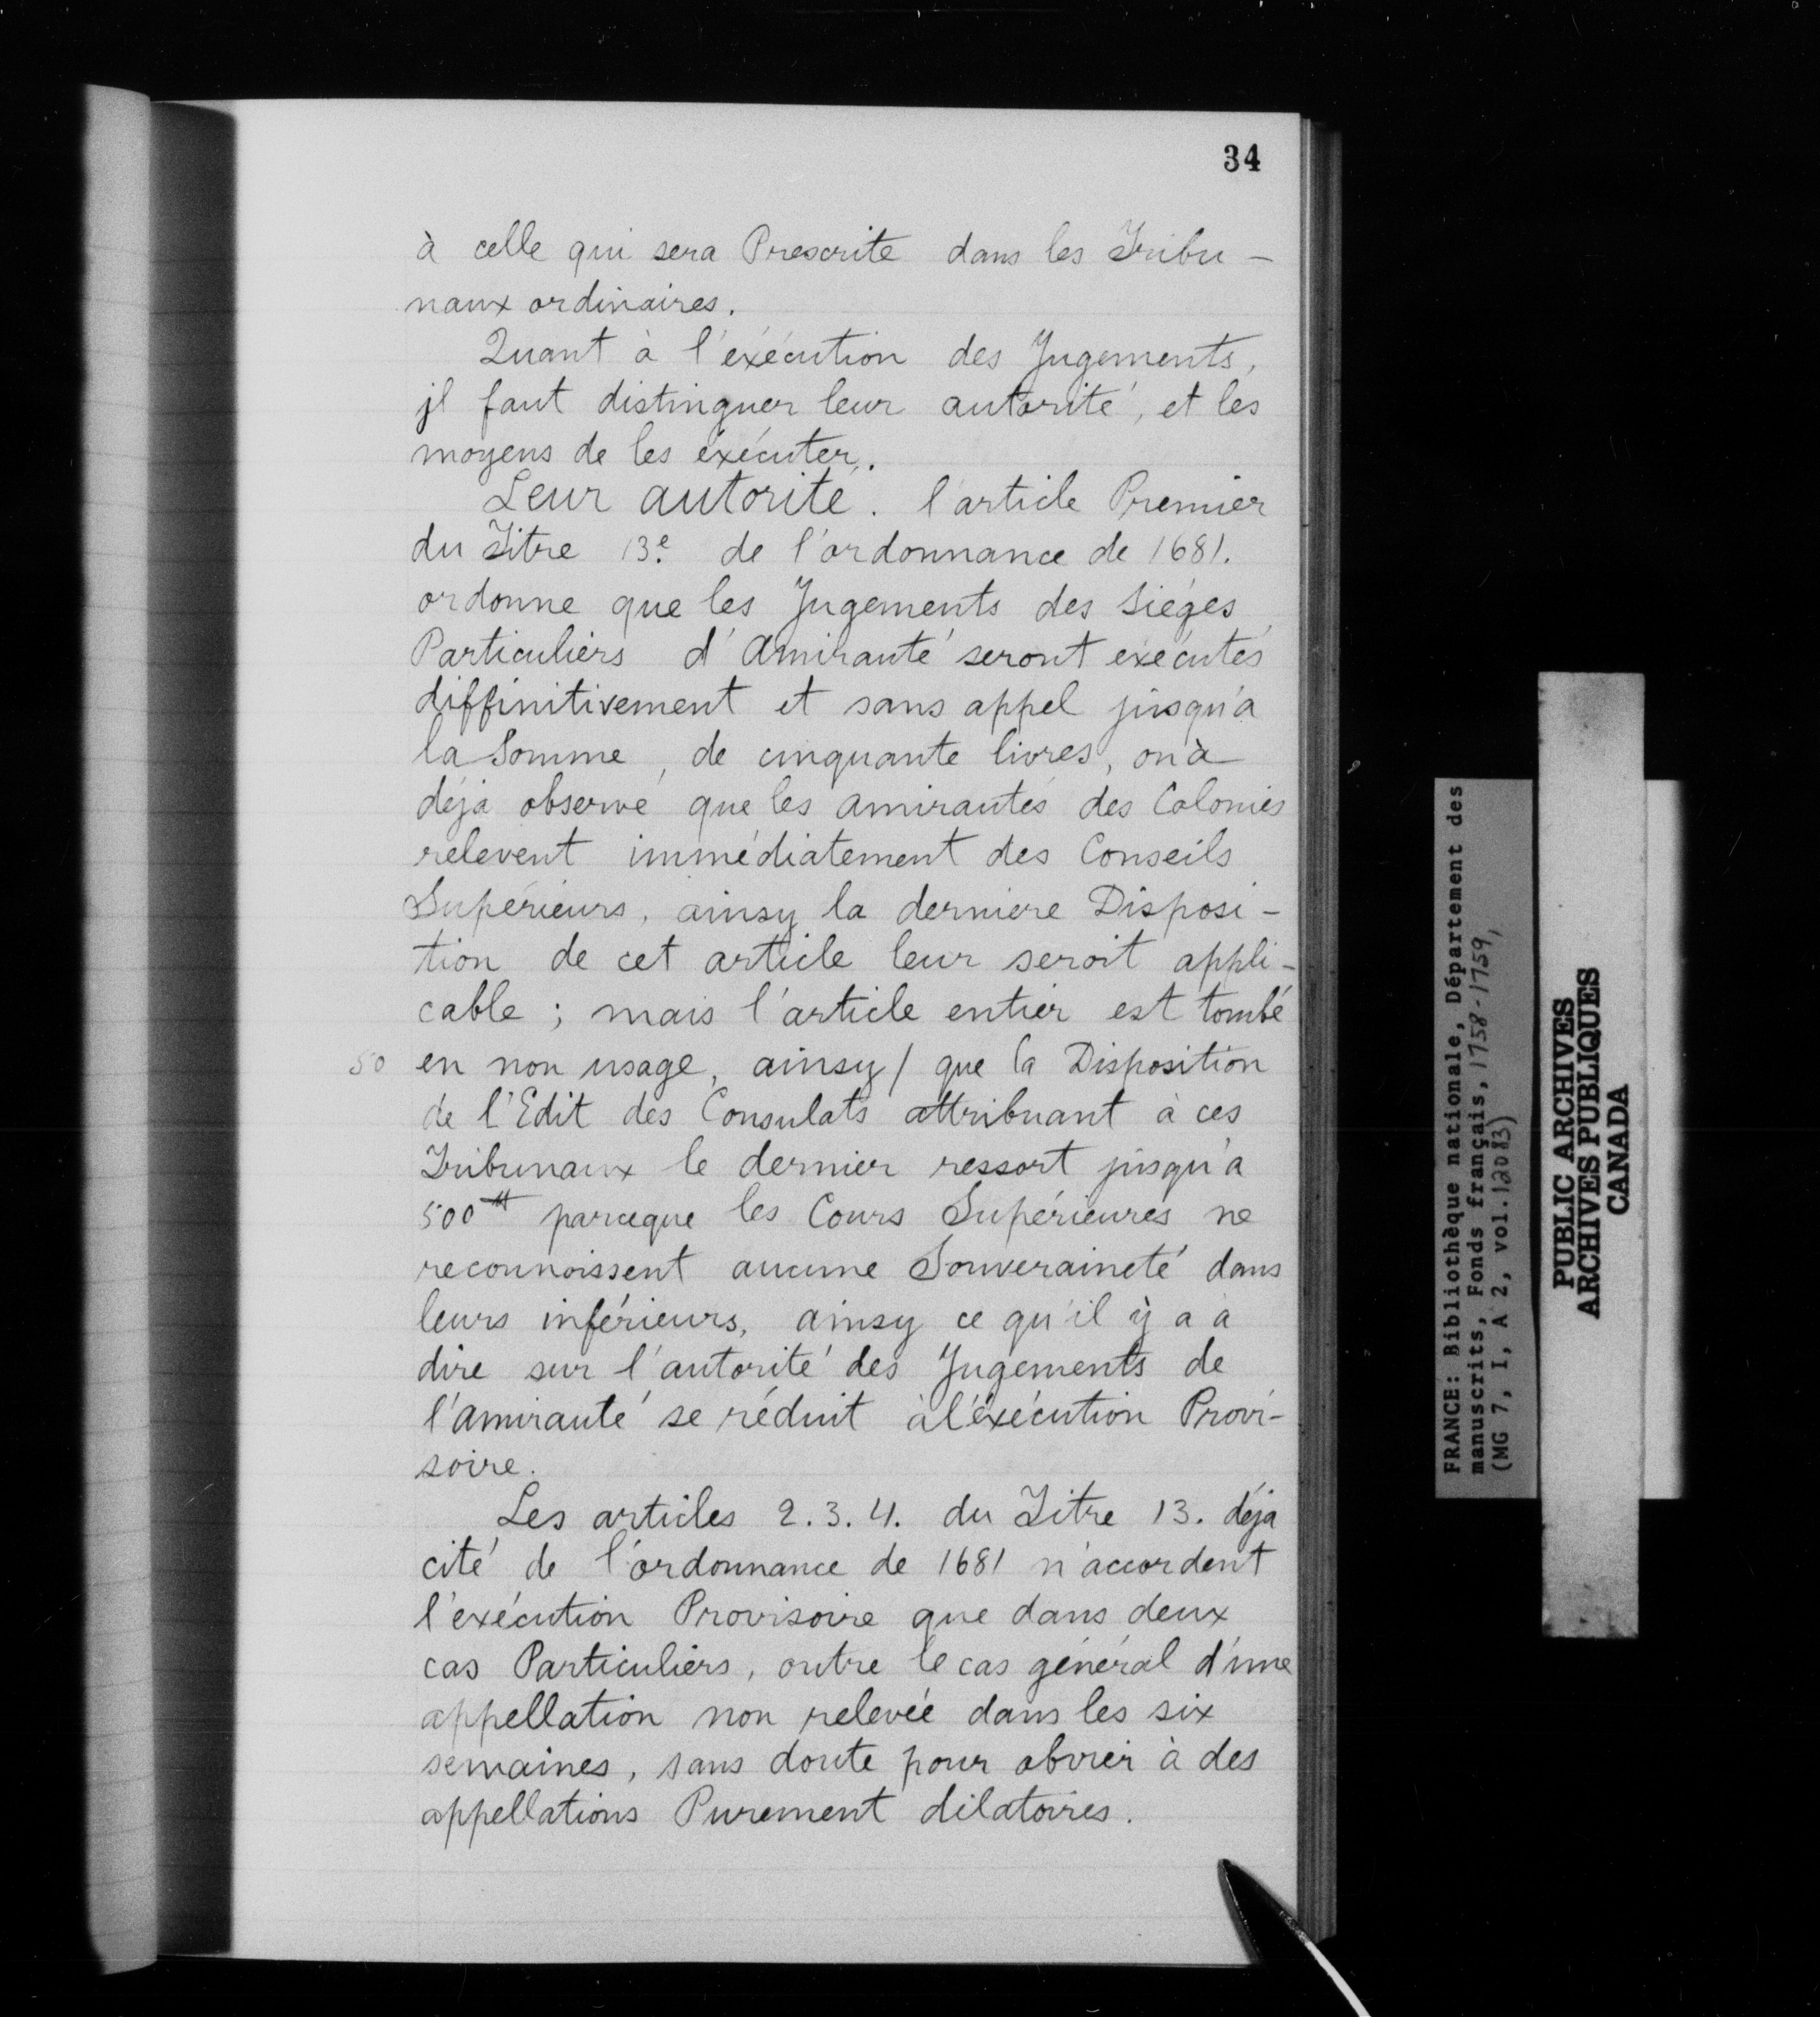 34
à celle qui sera Prescrite dans les Tribu-
naux ordinaires.
Quant à l'éxécution des Jugements,
jl faut distinguer leur autorité, et les
moyens de les éxécuter.
Leur autorité. l'article Premier
du Titre 13e. de l'ordonnance de 1681.
ordonne que les Jugements des Siéges
Particuliers d'Amirauté seront éxécutés
diffinitivement et sans appel jusqu'à
la Somme, de cinquante livres, on à
déja observé que les amirautés des Colonies
relevent immédiatement des Conseils
Supérieurs, ainsy la derniere Disposi-
tion de cet article leur seroit appli-
cable ; mais l'article entier est tombé
50 en non usage, ainsy / que la Disposition
de l'Edit des Consulats attribuant à ces
Tribunaux le dernier ressort jusqu'à
500tt parceque les Cours Supérieures ne
reconnoissent aucune Souveraineté dans
leurs inférieurs, ainsy ce qu'il ÿ a à
dire sur l'autorité des Jugements de
l'amirauté se réduit à l'éxécution Provi-
soire.
Les articles 2.3.4. du Titre 13. déja
cité de l'ordonnance de 1681 n'accordent
l'exécution Provisoire que dans deux
cas Particuliers, outre le cas général d'une
appellation non relevée dans les six
semaines, sans doute pour obvier à des
appellations Purement dilatoires.
FRANCE: Bibliothèque nationale, Département des
manuscrits, Fonds français, 1758-1759,
(MG 7, I, A 2, vol. 12083)
PUBLIC ARCHIVES
ARCHIVES PUBLIQUES
CANADA